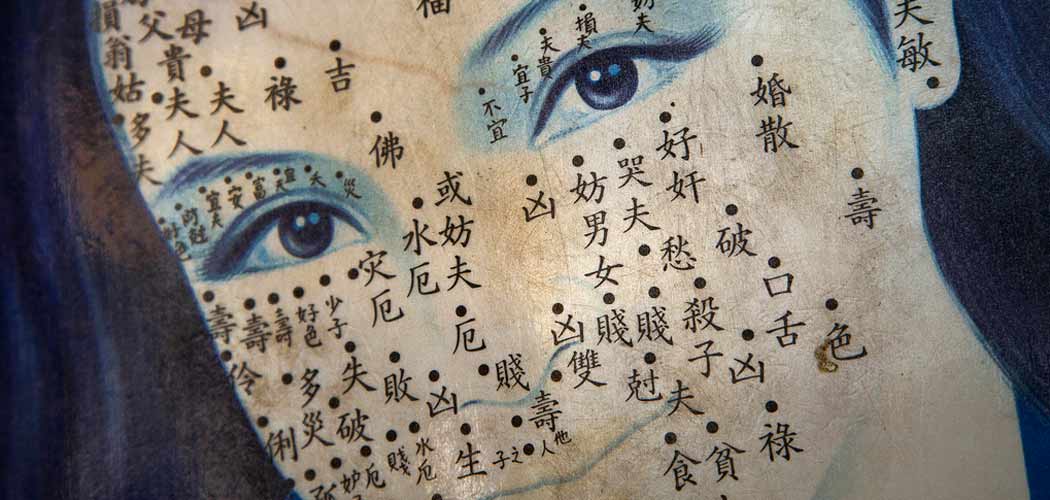 母貴夫人
凶
夫人
祿
吉
福
佛
不宜
宜子
夫貴
損夫
妨夫
夫敏
婚散
壽
好奸
哭夫
妨男女
凶
或妨夫
水厄
灾厄
厄
愁
破
口舌
色
殺子
賤
賤
凶
雙
凶
尅夫
賤
壽
他人
之子
生
凶
敗
失
破
多災
俐
伶
壽
壽
壽
好色
少子
宜夫
安
富
災
水厄
賤
厄
食
貧
祿
損翁姑
多夫
父